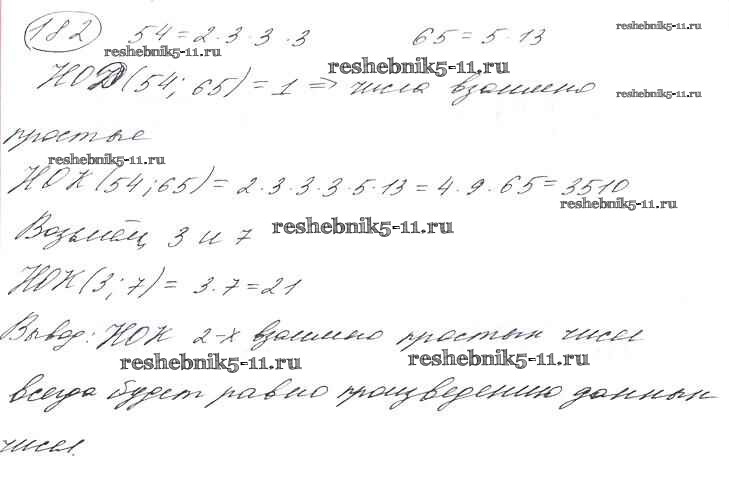 182 54 = 2·3·3·3 65 = 5·13 reshebnik5-11.ru
reshebnik5-11.ru
reshebnik5-11.ru
НОД(54; 65) = 1 => числа взаимно reshebnik5-11.ru
простые
reshebnik5-11.ru
НОК(54; 65) = 2·3·3·3·5·13 = 4·9·65 = 3510
reshebnik5-11.ru
Возьмём 3 и 7 reshebnik5-11.ru
НОК(3; 7) = 3·7 = 21
Вывод: НОК 2-х взаимно простых чисел
reshebnik5-11.ru reshebnik5-11.ru
всегда будет равно произведению данных
чисел.